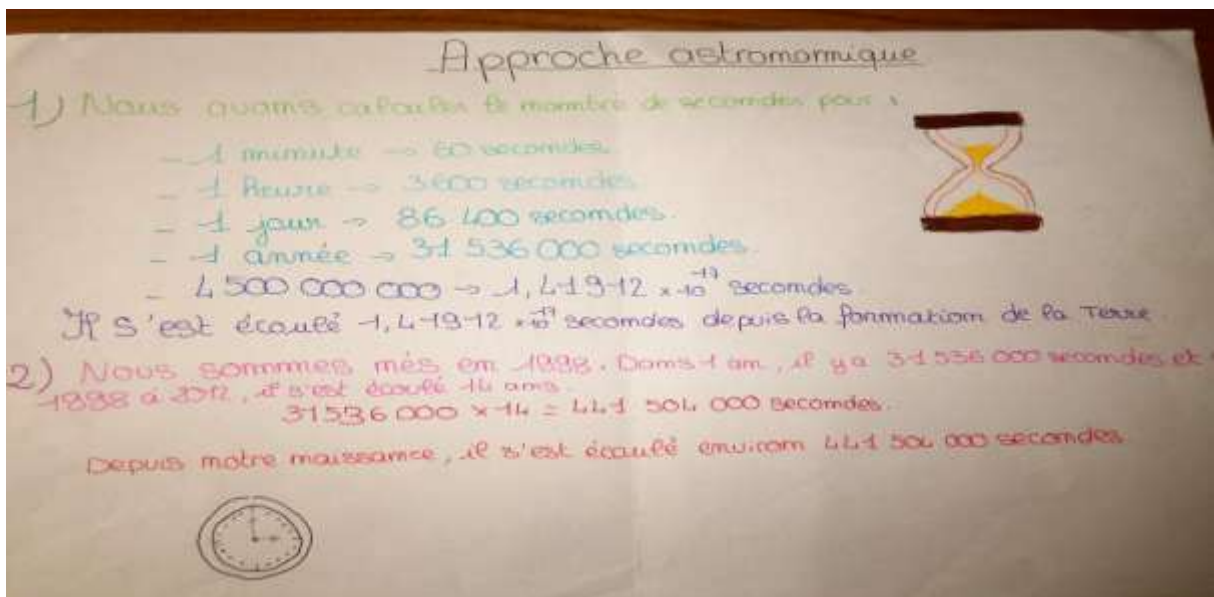 Approche astronomique
1) Nous avons calculer le nombre de secondes pour :
- 1 minute → 60 secondes.
- 1 heure → 3600 secondes.
- 1 jour → 86 400 secondes.
- 1 année → 31 536 000 secondes.
- 4 500 000 000 → 1,41912 × 10¹⁷ secondes
Il s'est écoulé 1,41912 × 10¹⁷ secondes depuis la formation de la Terre.
2) Nous sommes nés en 1998. Dans 1 an, il y a 31 536 000 secondes et
1998 à 2012, il s'est écoulé 14 ans.
31536 000 × 14 = 441 504 000 secondes.
Depuis notre naissance, il s'est écoulé environ 441 504 000 secondes